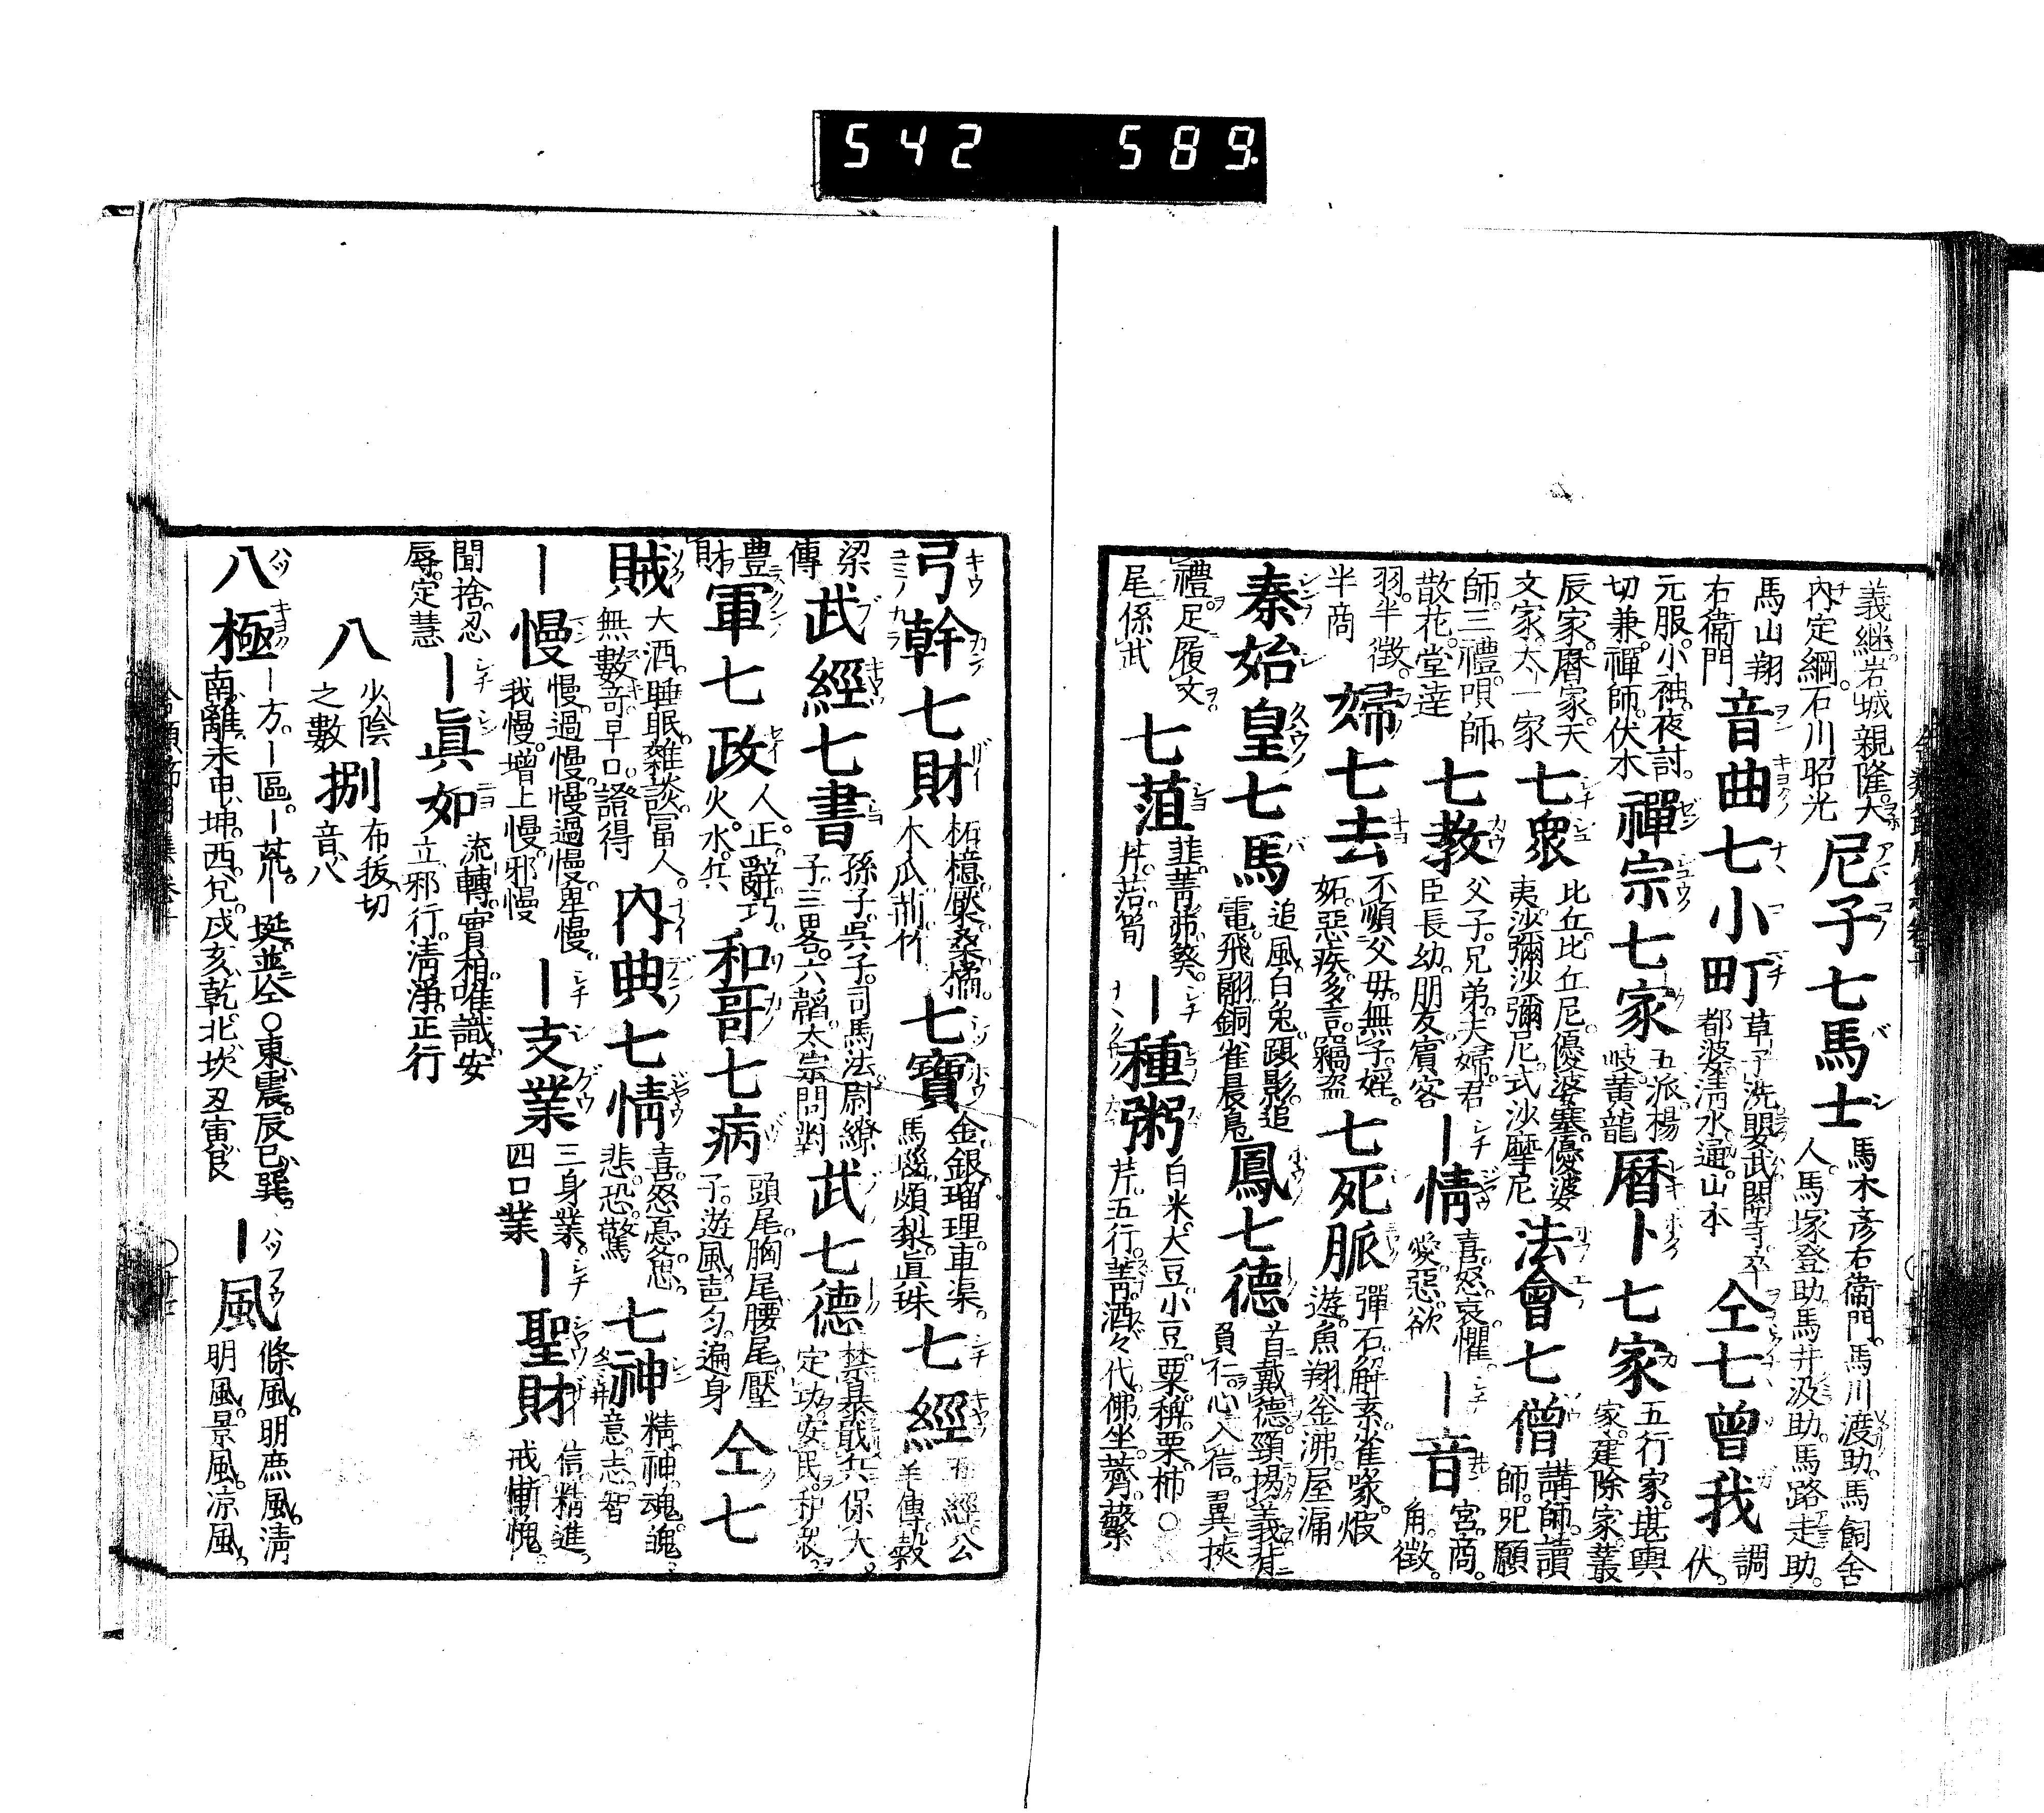 542 589
義継。岩城親隆。大
内定綱。石川昭光 尼子七馬士 馬木彦右衞門。馬川渡助。馬飼舎
人。馬塚登助。馬井汲助。馬路走助。
馬山翔
右衞門 音曲七小町 草子洗。鸚武。關寺。卒
都婆。清水。通。山本 仝七曽我 調
伏。
元服。小袖。夜討。
切兼。禪師。伏木 禪宗七家 五派楊
岐黄龍 暦卜七家 五行家。堪輿
家。建除家。叢
辰家。暦家。天
文家。太一家 七衆 比丘。比丘尼。優婆塞。優婆
夷。沙彌。沙彌尼。式沙摩尼 法會七僧 講師。讀
師。呪願
師。三禮。唄師。
散花。堂達 七教 父子。兄弟。夫婦。君
臣。長幼。朋友。賓客 ー情 喜。怒。哀。懼。
愛。惡。欲 ー音 宮。商。
角。徴。
羽。半徴。
半商 婦七去 不順父母。無子。婬。
妬。惡疾。多言。竊盗 七死脈 彈石。解素。雀啄。蝦
遊。魚翔。釜沸。屋漏
秦始皇七馬 追風。白兔。躡影。追
電。飛翩。銅雀。晨鳧 鳳七德 首戴德。頸揚義。背
負仁。心入信。翼挾
禮。足履文。
尾係武 七葅 韮。菁。茆。葵。
芹。菭。筍 ー種粥 白米。大豆。小豆。粟。稗。栗。柿〇
芹。五行。菁。酒々代。佛坐。薺。蘩
弓幹七財 柘。檍。檿桑。橘。
木瓜。荊。竹 七寶 金。銀。瑠理。車渠。
馬瑙。頗梨。眞珠 七經 五經。公
羊傳。穀
梁
傳 武經七書 孫子。呉子。司馬法。尉繚
子。三畧。六韜。太宗問對 武七德 禁暴。戢兵。保大。
定功。安民。和衆。
豊
財 軍七政 人。正。辭。巧。
火。水。兵 和哥七病 頭尾。胸尾。腰尾。壓
子。遊風。邑匀。遍身 仝七
賊 大酒。睡眠。雜談。冨人。
無數竒。早口。證得 内典七情 喜。怒。憂。思。
悲。恐。驚 七神 精。神。魂。魄。
意。志。智
ー慢 慢。過慢。慢過慢。卑慢。
我慢。増上慢。邪慢 ー支業 三身業。
四口業 ー聖財 信。精進。
戒。慚愧。
聞。捨。忍
辱。定慧 ー眞如 流轉。實相。唯識。安
立。邪行。清淨。正行
八 少陰
之數 捌 布拔切
音八
八極 ー方。ー區。ー荒。ー埏。並仝〇東震。辰巳巽。
南離。未申坤。西兌。戌亥乾。北坎。丑寅艮 ー風 條風。明庶風。清
明風。景風。涼風。